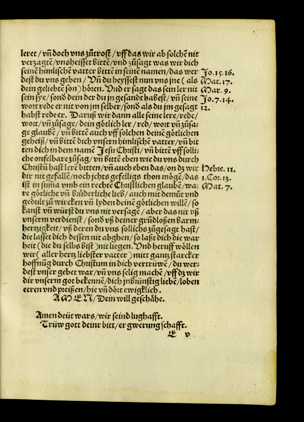 leret / vñ doch vns zůtrost / vff das wir ab solchē nit
verzagtē / vnsheissest bittē / vnd zůsagt was wir dich
seinē himlischē vatter bittē in seinē namen / das wer
dest du vns geben / Vñ du heyssest nun vns jne (als
dein geliebtē son) hörten. Vnd er sagt das sein ler nit
sein sye / sond dein der du jn gesandt habest / vñ seine
wort rede er nit von jm selber / sond als du jm gesagt
habst redet er. Daruff wir dann alle seine lere / rede /
wort / vñ zůsage / dein götlich ler / red / wort vñ zůsa-
ge glaubē / vñ bittē auch vff solchen deinē götlichen
geheiß / vñ bittē dich vnsern himlischē vatter / vñ bit
ten dich in dem namē Jesu Christi / vñ bittē vff soll-
iche onfelbare zůsag / vñ bittē eben wie du vns durch
Christū hast lerē bitten / vñ bittē auch eben das / on dz wir
dir nit gefallē / noch jchts gefelligs thon mögē / das
ist in sūma vmb ein rechte Christlichen glaubē / wa-
re götliche vñ brüderliche lieb / auch mit demůt vnd
gedult zů wircken vñ lyden deinē götlichen willē / so
kanst vñ würst du vns nit versagē / aber das nit vß
vnserm verdienst / sond vß deiner grundlosen barm-
hertzigkeit / vß deren du vns sollichs zůgesagt hast /
die lasset dich dessen nit abghen / so laßt dich die war
heit (die du selbs bist) nie liegen. Vnd herumb wöllen
wir (aller hertz liebster vatter) mit gantz starcker
hoffnūg durch Christum in dich vertrüwē / du wer-
dest vnser gebet war / vñ vns selig machē / vff dz wir
dir vnserm got bekennē / dich jnbrünstig liebē / loben
eeren vnd preißen / hie vñ dört ewigklich.
A M E N / Dein will geschähe.
Jo. 15. 16.
Mat. 17.
Mar. 9.
Jo. 7. 14.
12.
Hebre. 11.
1. Cor. 13.
Mat. 7.
Amen deüt wars / wir seind lughafft.
Trüw gott deinr bitt / er gwerung schafft.
E v